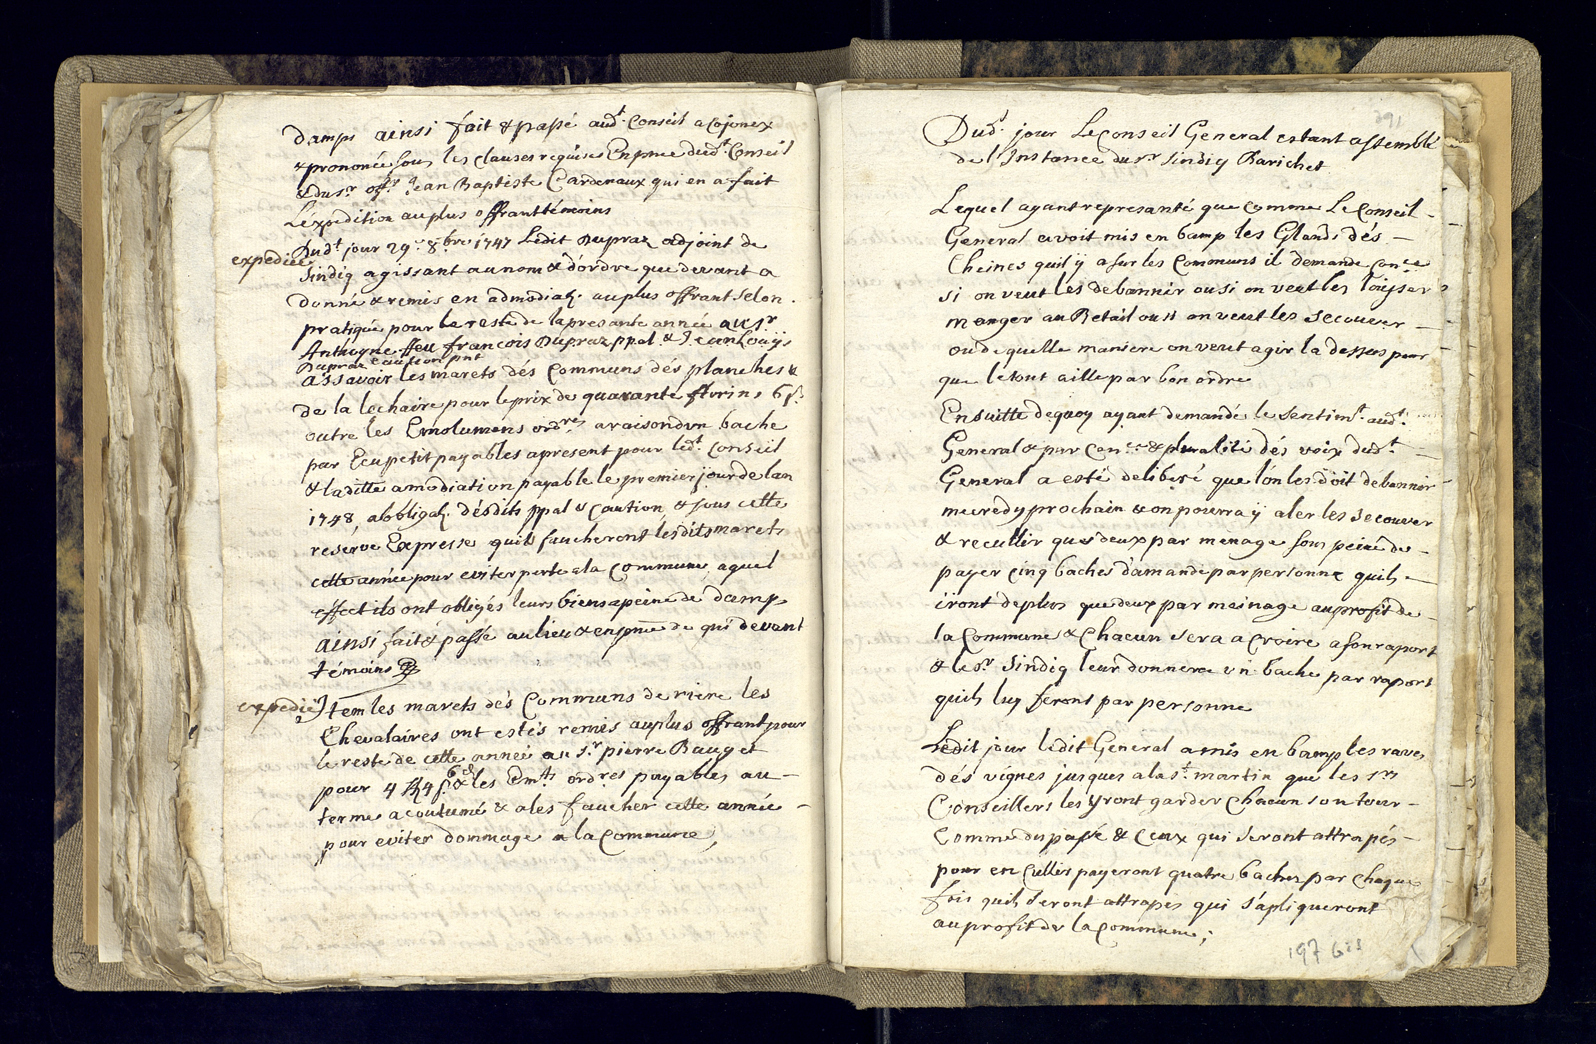 damps ainsi fait & passé aud.t Conseil a Cojonex
& prononcé sous les clauses requises En pnce dud.t Conseil
& du sr off.r Jean Baptiste Cardenaux qui en a fait
L'éxpedition au plus offrant témoins
expediée
Dud.t jour 29e 8bre 1747 Ledit Dupraz adjoint de
Sindiq agissant au nom & d'ordre que devant a
donné & remis en admodia.on au plus offrant selon
pratique pour le reste de la presante année au sr
Anthoyne ffeu françois Dupraz ppal & Jean Louÿs
Dupraz caution pnt
assavoir les marets dés Communs dés planches &
de la lechaire pour le prix de quarante florins 6 s.
outre les Emolumens ord.res a raison d'un bache
par Ecu petit payables apresent pour led.t Conseil
& laditte amodiation payable le premier jour de lan
1748, a lobliga.on désdits ppal & Caution, & sous cette
reserve Expresse quils faucheront lesdits marets
cette année pour eviter perte a la Commune, aquel
effect ils ont obligés leurs biens a peine de damps
ainsi fait & passé au lieu & en pnce de qui devant
témoins
expedié
Item les marets dés Communs derriere les
Chevalaires ont estés remis au plus offrant pour
le reste de cette année au S.r pierre Bauget
pour 4 ff 4 s. 6 d. & les Em.ts ord.res payables au
terme acoutumé & a les faucher cette année
pour eviter dommage a la Commune,
Dud.t jour Le Conseil General estant assemblé
de l'Instance du sr Sindiq Barichet
Lequel ayant representé que comme Le Conseil
General avoit mis en bamp les Glands dés
Cheines quil ÿ a sur les Communs il demande con.ce
si on veut les debannir ou si on veut les loÿser
manger au Betail ou si on veut les secouer
ou de quelle maniere on veut agir la dessus pour
que le tout aille par bon ordre
Ensuitte de quoy ayant demandé le sentim.t aud.t
General & par con.ce & pluralité dés voix dud.t
General a esté deliberé que lón les doit debannir
mecredy prochain & on pourra ÿ aler les secouer
& recullir que deux par menage sous peine de
payer cinq baches d'amande par personne quils
iront de plus que deux par meinage au profit de
la Commune & Chacun sera a Croire a son raport
& le sr Sindiq leur donnera un bache par raport
quils luy feront par personne
Ledit jour ledit General a mis en bamp les raves
dés vignes jusques a la s.t martin que les srs
Conseillers les yront garder Chacun son tour
Comme du passé & Ceux qui seront attrapés
pour en Cullir payeront quatre baches par chaque
fois quils seront attrapés qui s'apliqueront
au profit de la Commune;
197 bis